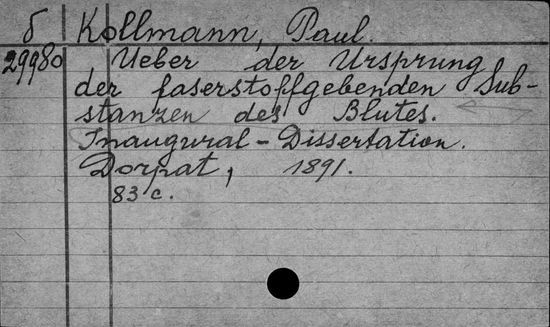 б Kollmann, Paul.
29980 Ueber der Ursprung
der faserstoffgebenden Sub-
stanzen des Blutes.
Inaugural-Dissertation.
Dorpat, 1891.
83 с.